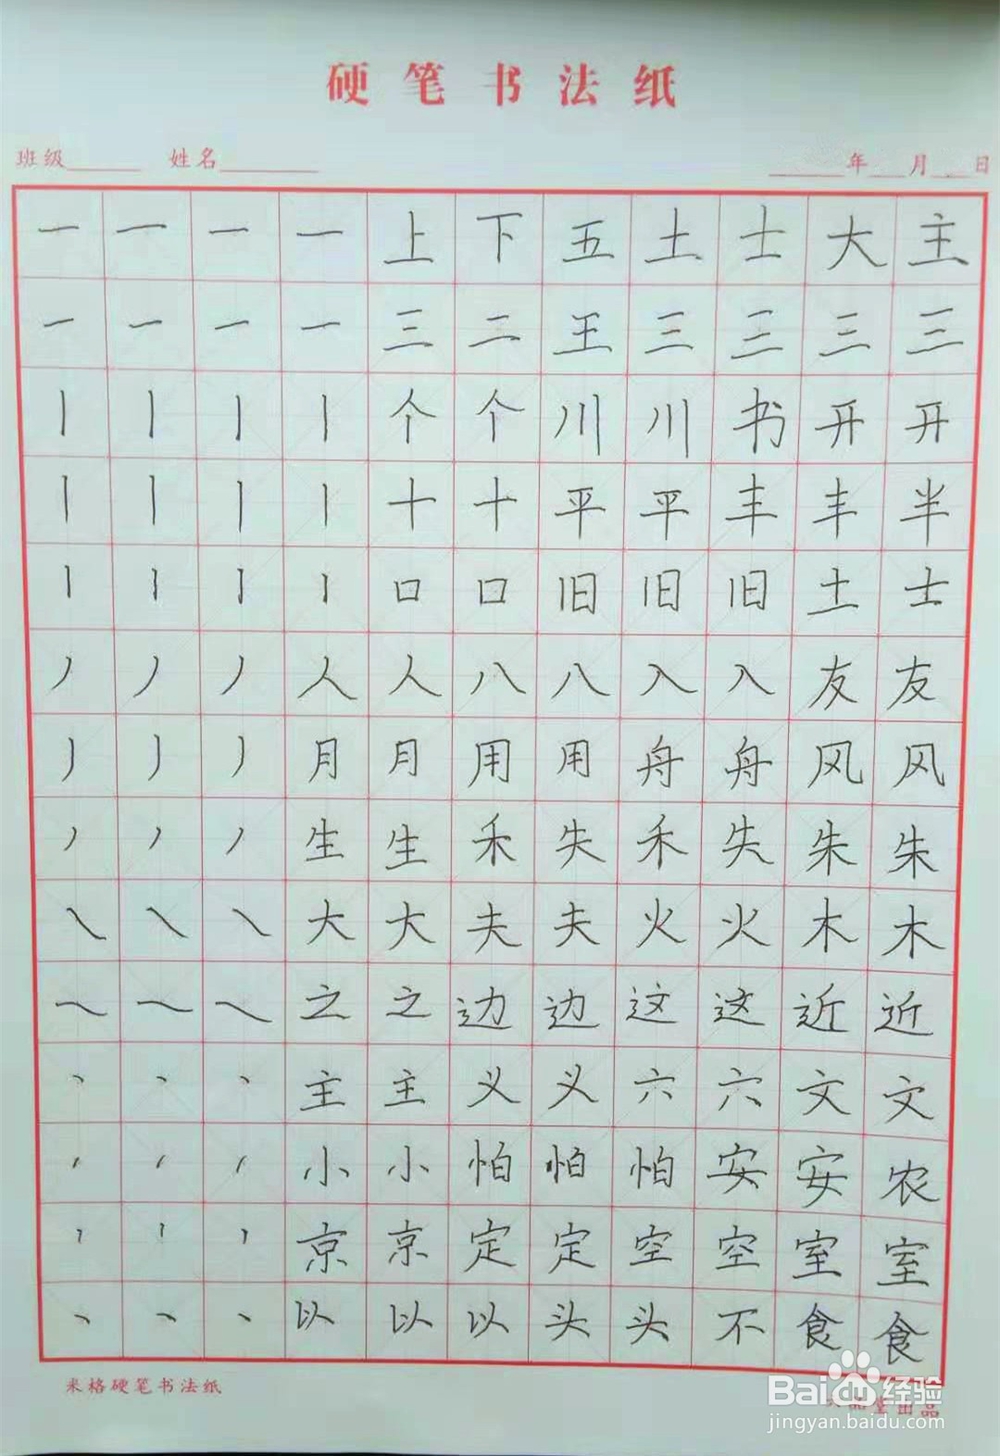 硬笔书法纸
班级 姓名 年 月 日
一 一 一 一 上 下 五 土 士 大 主
一 一 一 一 三 二 王 三 三 三 三
丨 丨 丨 丨 个 个 川 川 书 开 开
丨 丨 丨 丨 十 十 平 平 丰 丰 半
丨 丨 丨 丨 口 口 旧 旧 旧 土 士
丿 丿 丿 人 人 八 八 入 入 友 友
丿 丿 丿 月 月 用 用 舟 舟 风 风
丿 丿 丿 生 生 禾 失 禾 失 朱 朱
㇏ ㇏ ㇏ 大 大 夫 夫 火 火 木 木
㇏ ㇏ ㇏ 之 之 边 边 这 这 近 近
丶 丶 丶 主 主 义 义 六 六 文 文
丶 丶 丶 小 小 怕 怕 怕 安 安 农
丶 丶 丶 京 京 定 定 空 空 室 室
丶 丶 丶 以 以 以 头 头 不 食 食
米格硬笔书法纸
品堂出品
Baidu经验
jingyan.baidu.com